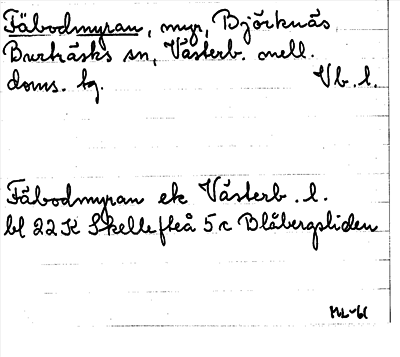 Fäbodmyran, myr, Björknäs
Burträsks sn, Västerb. mell.
doms. tg. Vb. l.
Fäbodmyran ek Västerb. l.
bl 22 K Skellefteå 5c Blåbergsliden
ML-61